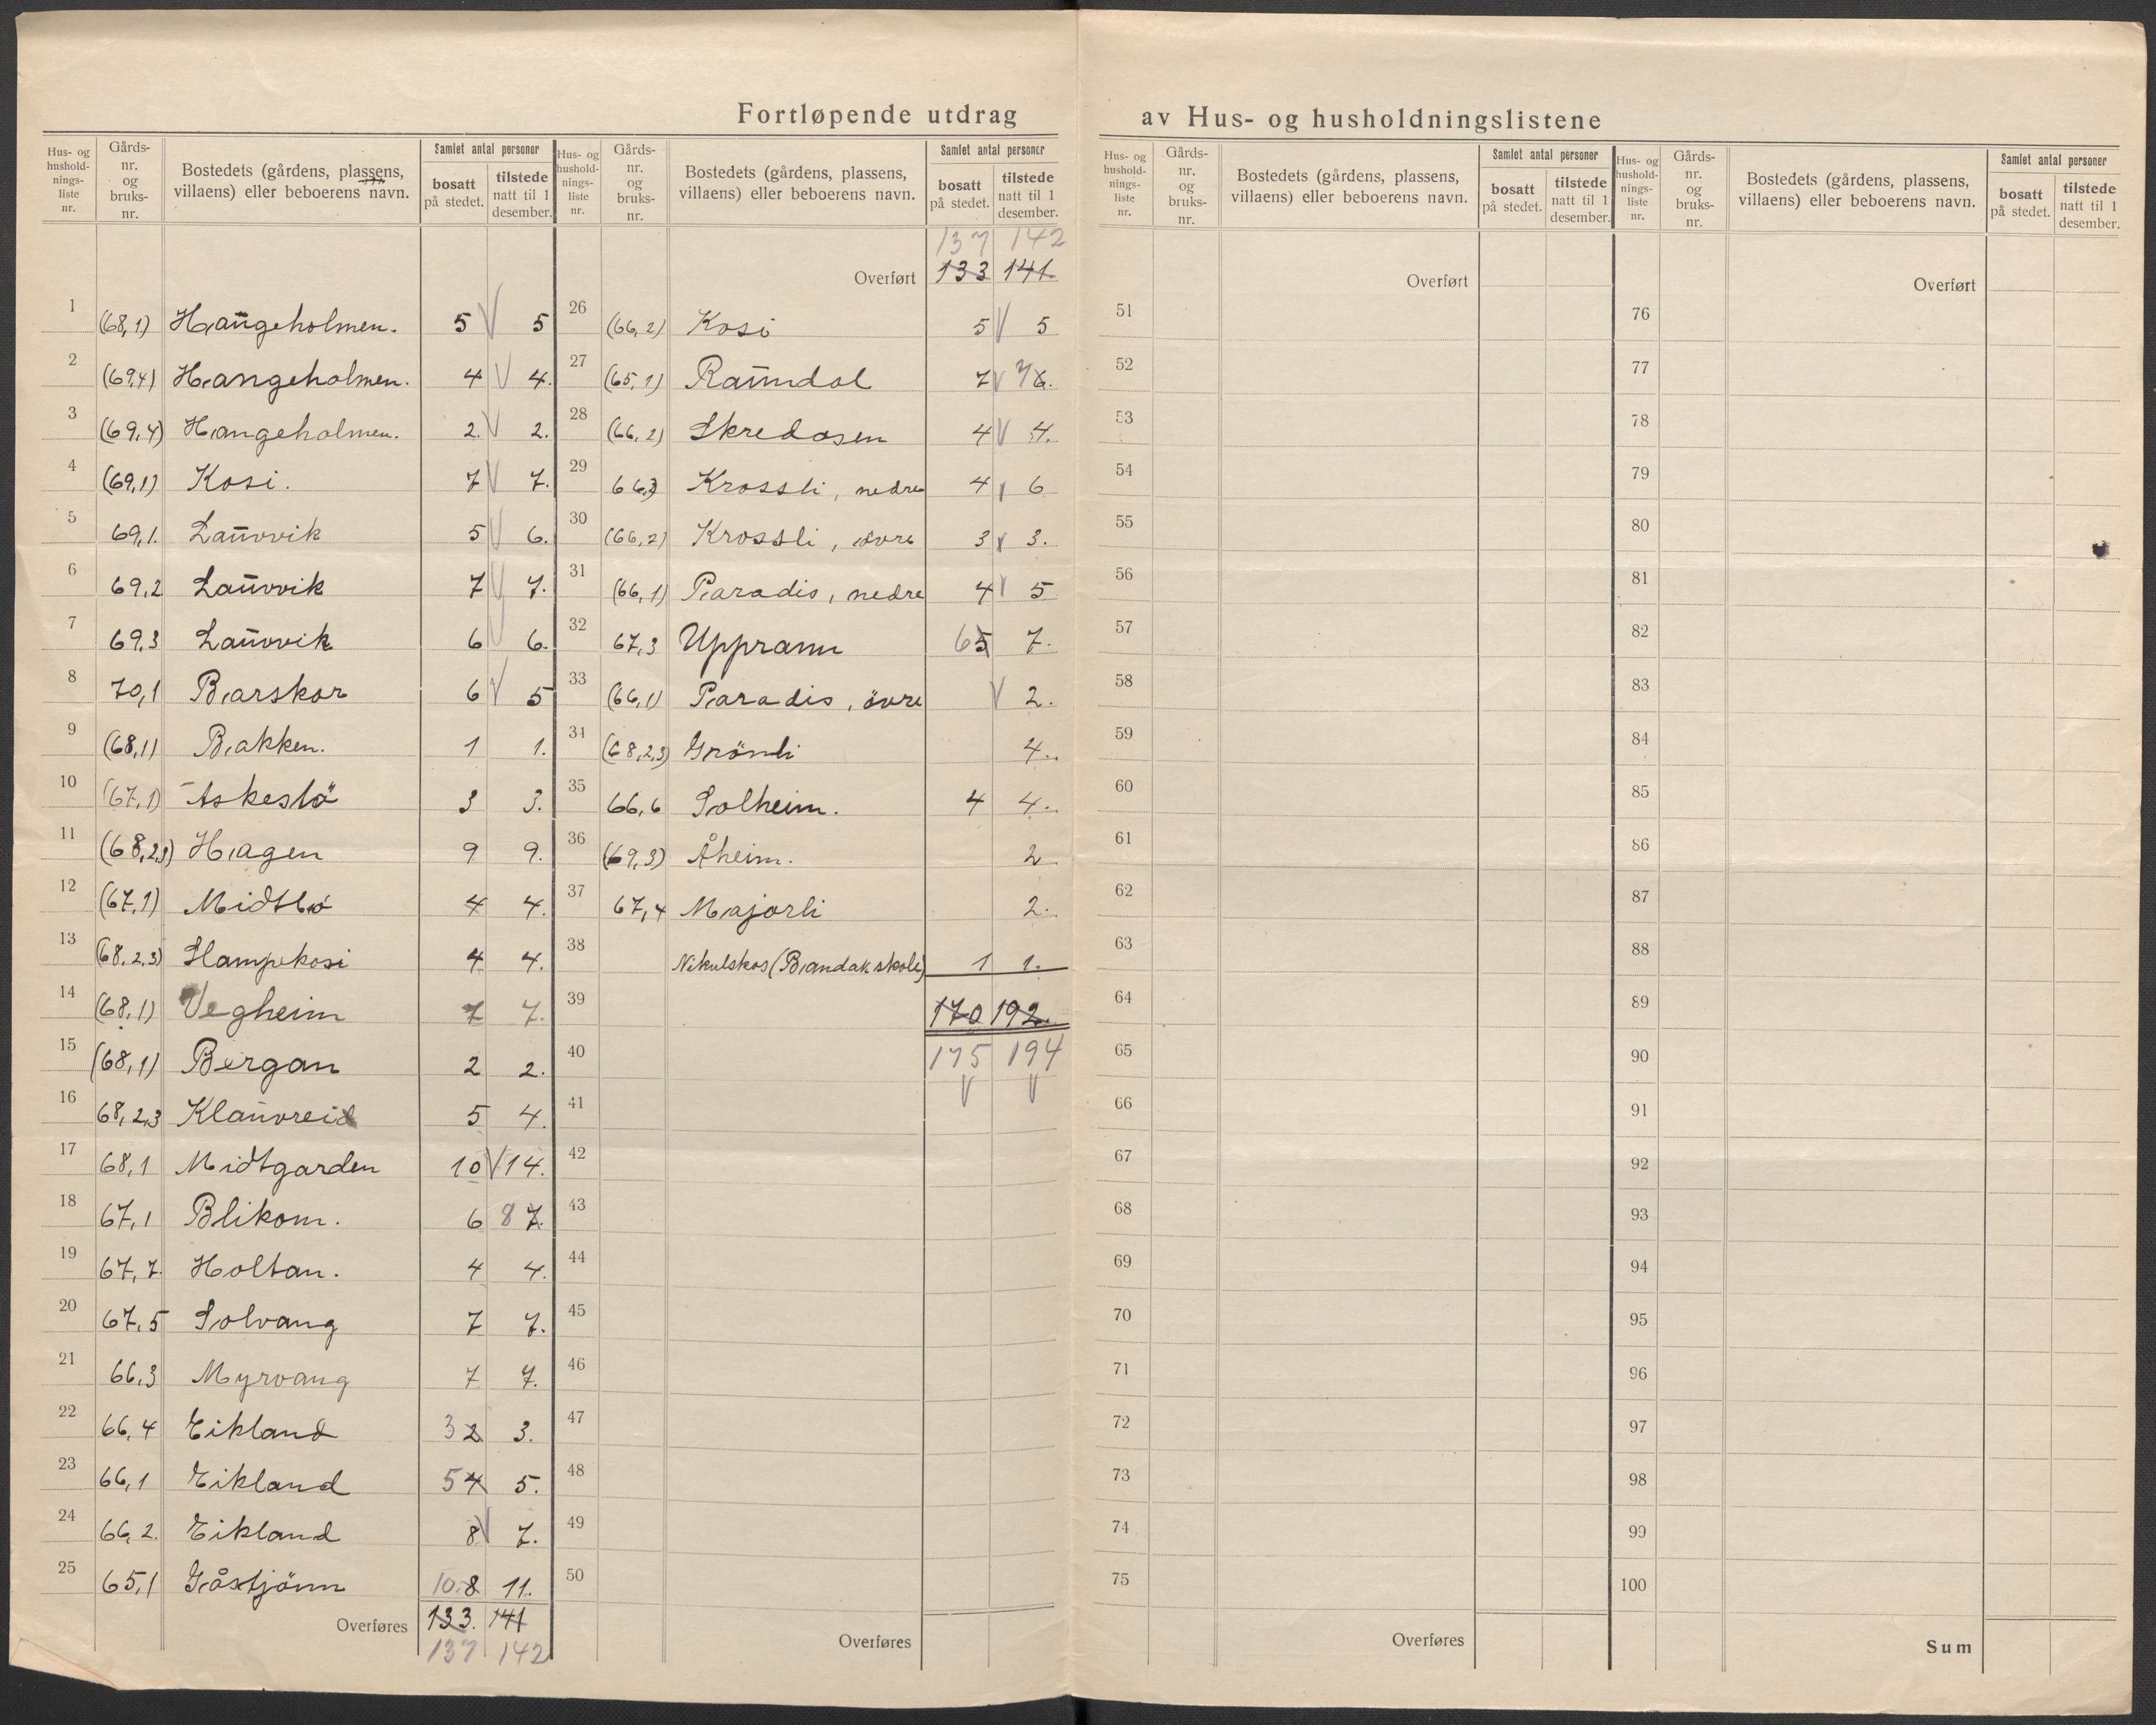 Fortløpende utdrag av Hus- og husholdningslistene
Hus- og hushold-nings-liste nr. | Gårds-nr. og bruks-nr. | Bostedets (gårdens, plassens, villaens) eller beboerens navn. | Samlet antal personer | bosatt på stedet. | tilstede natt til 1 desember.
1 (68,1) Haugeholmen. 5 V 5
2 (69,4) Haugeholmen. 4 V 4.
3 (69,4) Haugeholmen. 2. V 2.
4 (69,1) Kosi. 7 V 7.
5 69,1. Lauvvik 5 V 6.
6 69,2 Lauvvik 7 V 7.
7 69,3 Lauvvik 6 V 6.
8 70,1 Barskor 6 V 5
9 (68,1) Bakken. 1 1.
10 (67,1) Askeslö 3 3.
11 (68,2,3) Hagen 9 9.
12 (67,1) Midtbö 4 4.
13 (68,2,3) Hampekosi 4 4.
14 (68,1) Vegheim 7 7.
15 (68,1) Bergan 2 2.
16 68,2,3 Klauvreid 5 4.
17 68,1 Midtgarden 10 V 14.
18 67,1 Blikom. 6 8 7.
19 67,7. Holtan. 4 4.
20 67,5 Solvang 7 7.
21 66,3 Myrvang 7 7.
22 66,4 Eikland 3 2 3.
23 66,1 Eikland 5 4 5.
24 66,2. Eikland 8 V 7.
25 65,1 Gåstjönn 10 8 11.
Overføres 133. 141
137 142
Hus- og hushold-nings-liste nr. | Gårds-nr. og bruks-nr. | Bostedets (gårdens, plassens, villaens) eller beboerens navn. | Samlet antal personer | bosatt på stedet. | tilstede natt til 1 desember.
137 142
Overført 133 141.
26 (66,2) Kosi 5 V 5
27 (65,1) Raundal 7 V 7 6.
28 (66,2) Skredåsen 4 V 4.
29 66,2 Krossli, nedre 4 6
30 (66,2) Krossli, övre 3 V 3.
31 (66,1) Paradis, nedre 4 V 5
32 67,3 Uppraun 6 5 7.
33 (66,1) Paradis, övre V 2.
34 (68,2,3) Grönli 4.
35 66,6 Solheim. 4 4.
36 (69,3) Åheim. 2
37 67,4 Majorli 2.
38 Nikulskos (Bandak skole) 1 1.
39 170 192.
40 175 194
V V
41
42
43
44
45
46
47
48
49
50
Overføres
Hus- og hushold-nings-liste nr. | Gårds-nr. og bruks-nr. | Bostedets (gårdens, plassens, villaens) eller beboerens navn. | Samlet antal personer | bosatt på stedet. | tilstede natt til 1 desember.
Overført
51
52
53
54
55
56
57
58
59
60
61
62
63
64
65
66
67
68
69
70
71
72
73
74
75
Overføres
Hus- og hushold-nings-liste nr. | Gårds-nr. og bruks-nr. | Bostedets (gårdens, plassens, villaens) eller beboerens navn. | Samlet antal personer | bosatt på stedet. | tilstede natt til 1 desember.
Overført
76
77
78
79
80
81
82
83
84
85
86
87
88
89
90
91
92
93
94
95
96
97
98
99
100
Sum